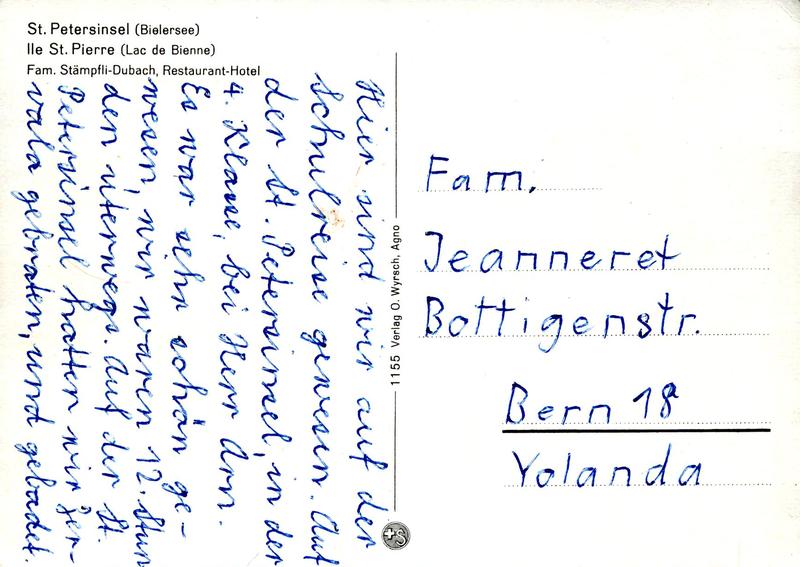 St. Petersinsel (Bielersee)
Ile St. Pierre (Lac de Bienne)
Fam. Stämpfli-Dubach, Restaurant-Hotel
Hier sind wir auf der
Schulreise gewesen. Auf
der St. Petersinsel, in der
4. Klasse, bei Herr Arn.
Es war sehr schön ge-
wesen, wir waren 12. Stun
den uterwegs. Auf der St.
Petersinsel hatten wir Zer-
vala gebraten, und gebadet.
1155 Verlag O. Wyrsch, Agno
+S
Fam.
Jeanneret
Bottigenstr.
Bern 18
Yolanda